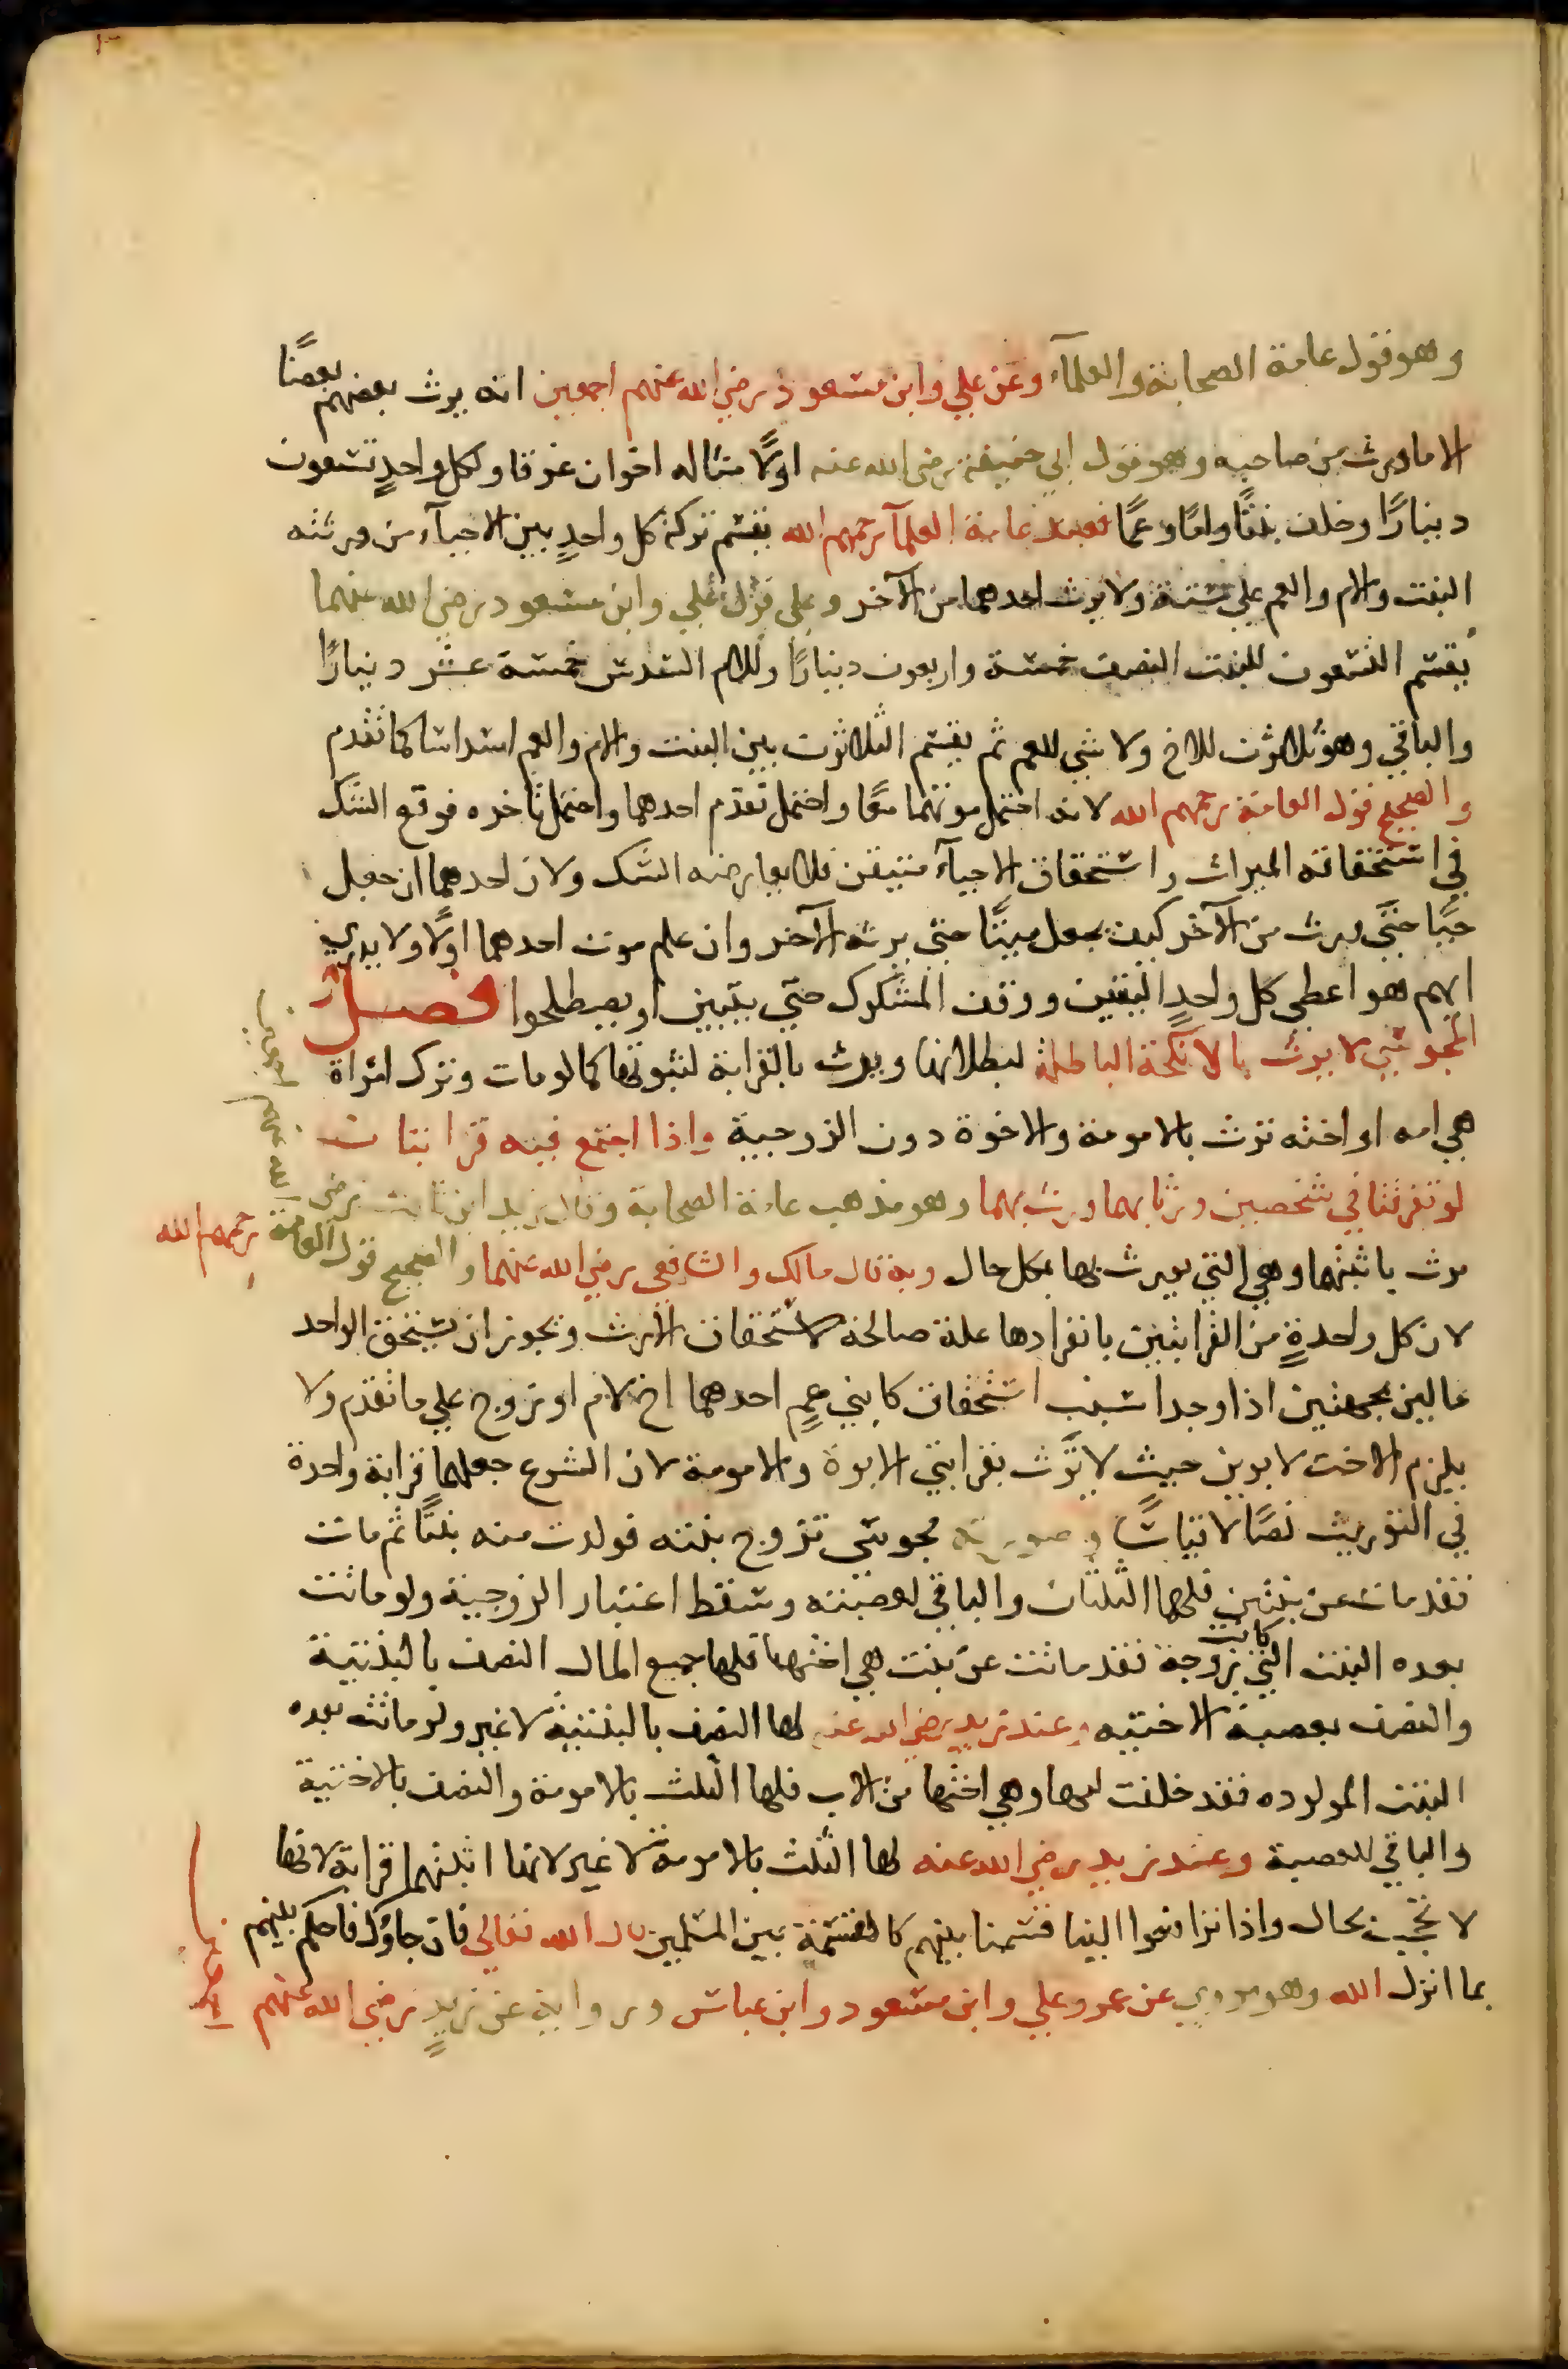 وهو قول عامة الصحابة والعلمآء وعن علي وابن مسعود رضي الله عنهم اجمعين انه يرث بعضهم بعضًا
الا ما ورث من صاحبه وهو قول ابي حنيفة رضي الله عنه اولًا مثاله اخوان غرقا ولكل واحدٍ تسعون
دينارًا وخلف بنتًا وامًا وعمًا فعند عامة العلمآ رحمهم الله يقسم تركة كل واحدٍ بين الاحيآء من ورثته
البنت والام والعم علي ستة ولا يرث احدهما من الآخر وعلي قول علي وابن مسعود رضي الله عنهما
يقسم التسعون للبنت النصف خمسة واربعون دينارًا وللام السدس خمسة عشر دينارًا
والباقي وهو ثلاثون للاخ ولا شي للعم ثم يقسم الثلاثون بين البنت والام والعم اسداسا كما تقدم
والصحيح قول العامة رحمهم الله لانه احتمل موتهما معًا واحتمل تقدم احدهما واحتمل تاخره فوقع الشك
في استحقاقه الميراث واستحقاق الاحيآء متيقن فلا يعارضه الشك ولان احدهما ان جعل
حيًا حتي ورث من الآخر كيف يجعل ميتًا حتي يرثه الآخر وان علم موت احدهما اولًا ولا يدري
ايهم هو اعطي كل واحدٍ اليقين ووقف المشكوك حتي يتبين او يصطلحوا فصل
المجوسي لا يرث بالانكحة الباطلة لبطلانها ويرث بالقرابة لثبوتها كما لو مات وترك امراة
هي امه او اخته ترث بالامومة والاخوة دون الزوجية واذا اجتمع فيه قرابتان
لو تفرقتا في شخصين ورثا بهما ورث بهما وهو مذهب عامة الصحابة وقال زيد ابن ثابت رضي الله عنهم اجمعين
يرث باثبتهما وهي التي يرث بها بكل حال وبه قال مالك والشافعي رضي الله عنهما والصحيح قول العامة رحمهم الله
لان كل واحدةٍ من القرابتين بانفرادها علة صالحة لاستحقاق الارث ويجوز ان يستحق الواحد
مالين بجهتين اذا وجدا سبب استحقاق كابني عمٍ احدهما اخ لام او زوج علي ما تقدم ولا
يلزم الاخت لابوين حيث لا ترث بقرابتي الابوة والامومة لان الشرع جعلهما قرابة واحدة
في التوريث نصًا لا قياسًا وصورته مجوسي تزوج بنته فولدت منه بنتًا ثم مات
فقد مات عن بنتين فلهما الثلثان والباقي لعصبته وسقط اعتبار الزوجية ولو ماتت
بعده البنت التي كانت زوجة فقد ماتت عن بنت هي اختها فلها جميع المال النصف بالبنتية
والنصف بعصبة الاختيه وعند زيد رضي الله عنه لها النصف بالبنتية لا غير ولو ماتت بعده
البنت المولوده فقد خلفت امها وهي اختها من الاب فلها الثلث بالامومة والنصف بالاختية
والباقي للعصبة وعند زيد رضي الله عنه لها الثلث بالامومة لا غير لانها اثبتهما قرابة لانها
لا تحجب بحال واذا ترافعوا الينا قسمنا بينهم كالقسمة بين المسلمين قال الله تعالي فان جاؤك فاحكم بينهم
بما انزل الله وهو مروي عن عمر وعلي وابن مسعود وابن عباس ورواية عن زيدٍ رضي الله عنهم